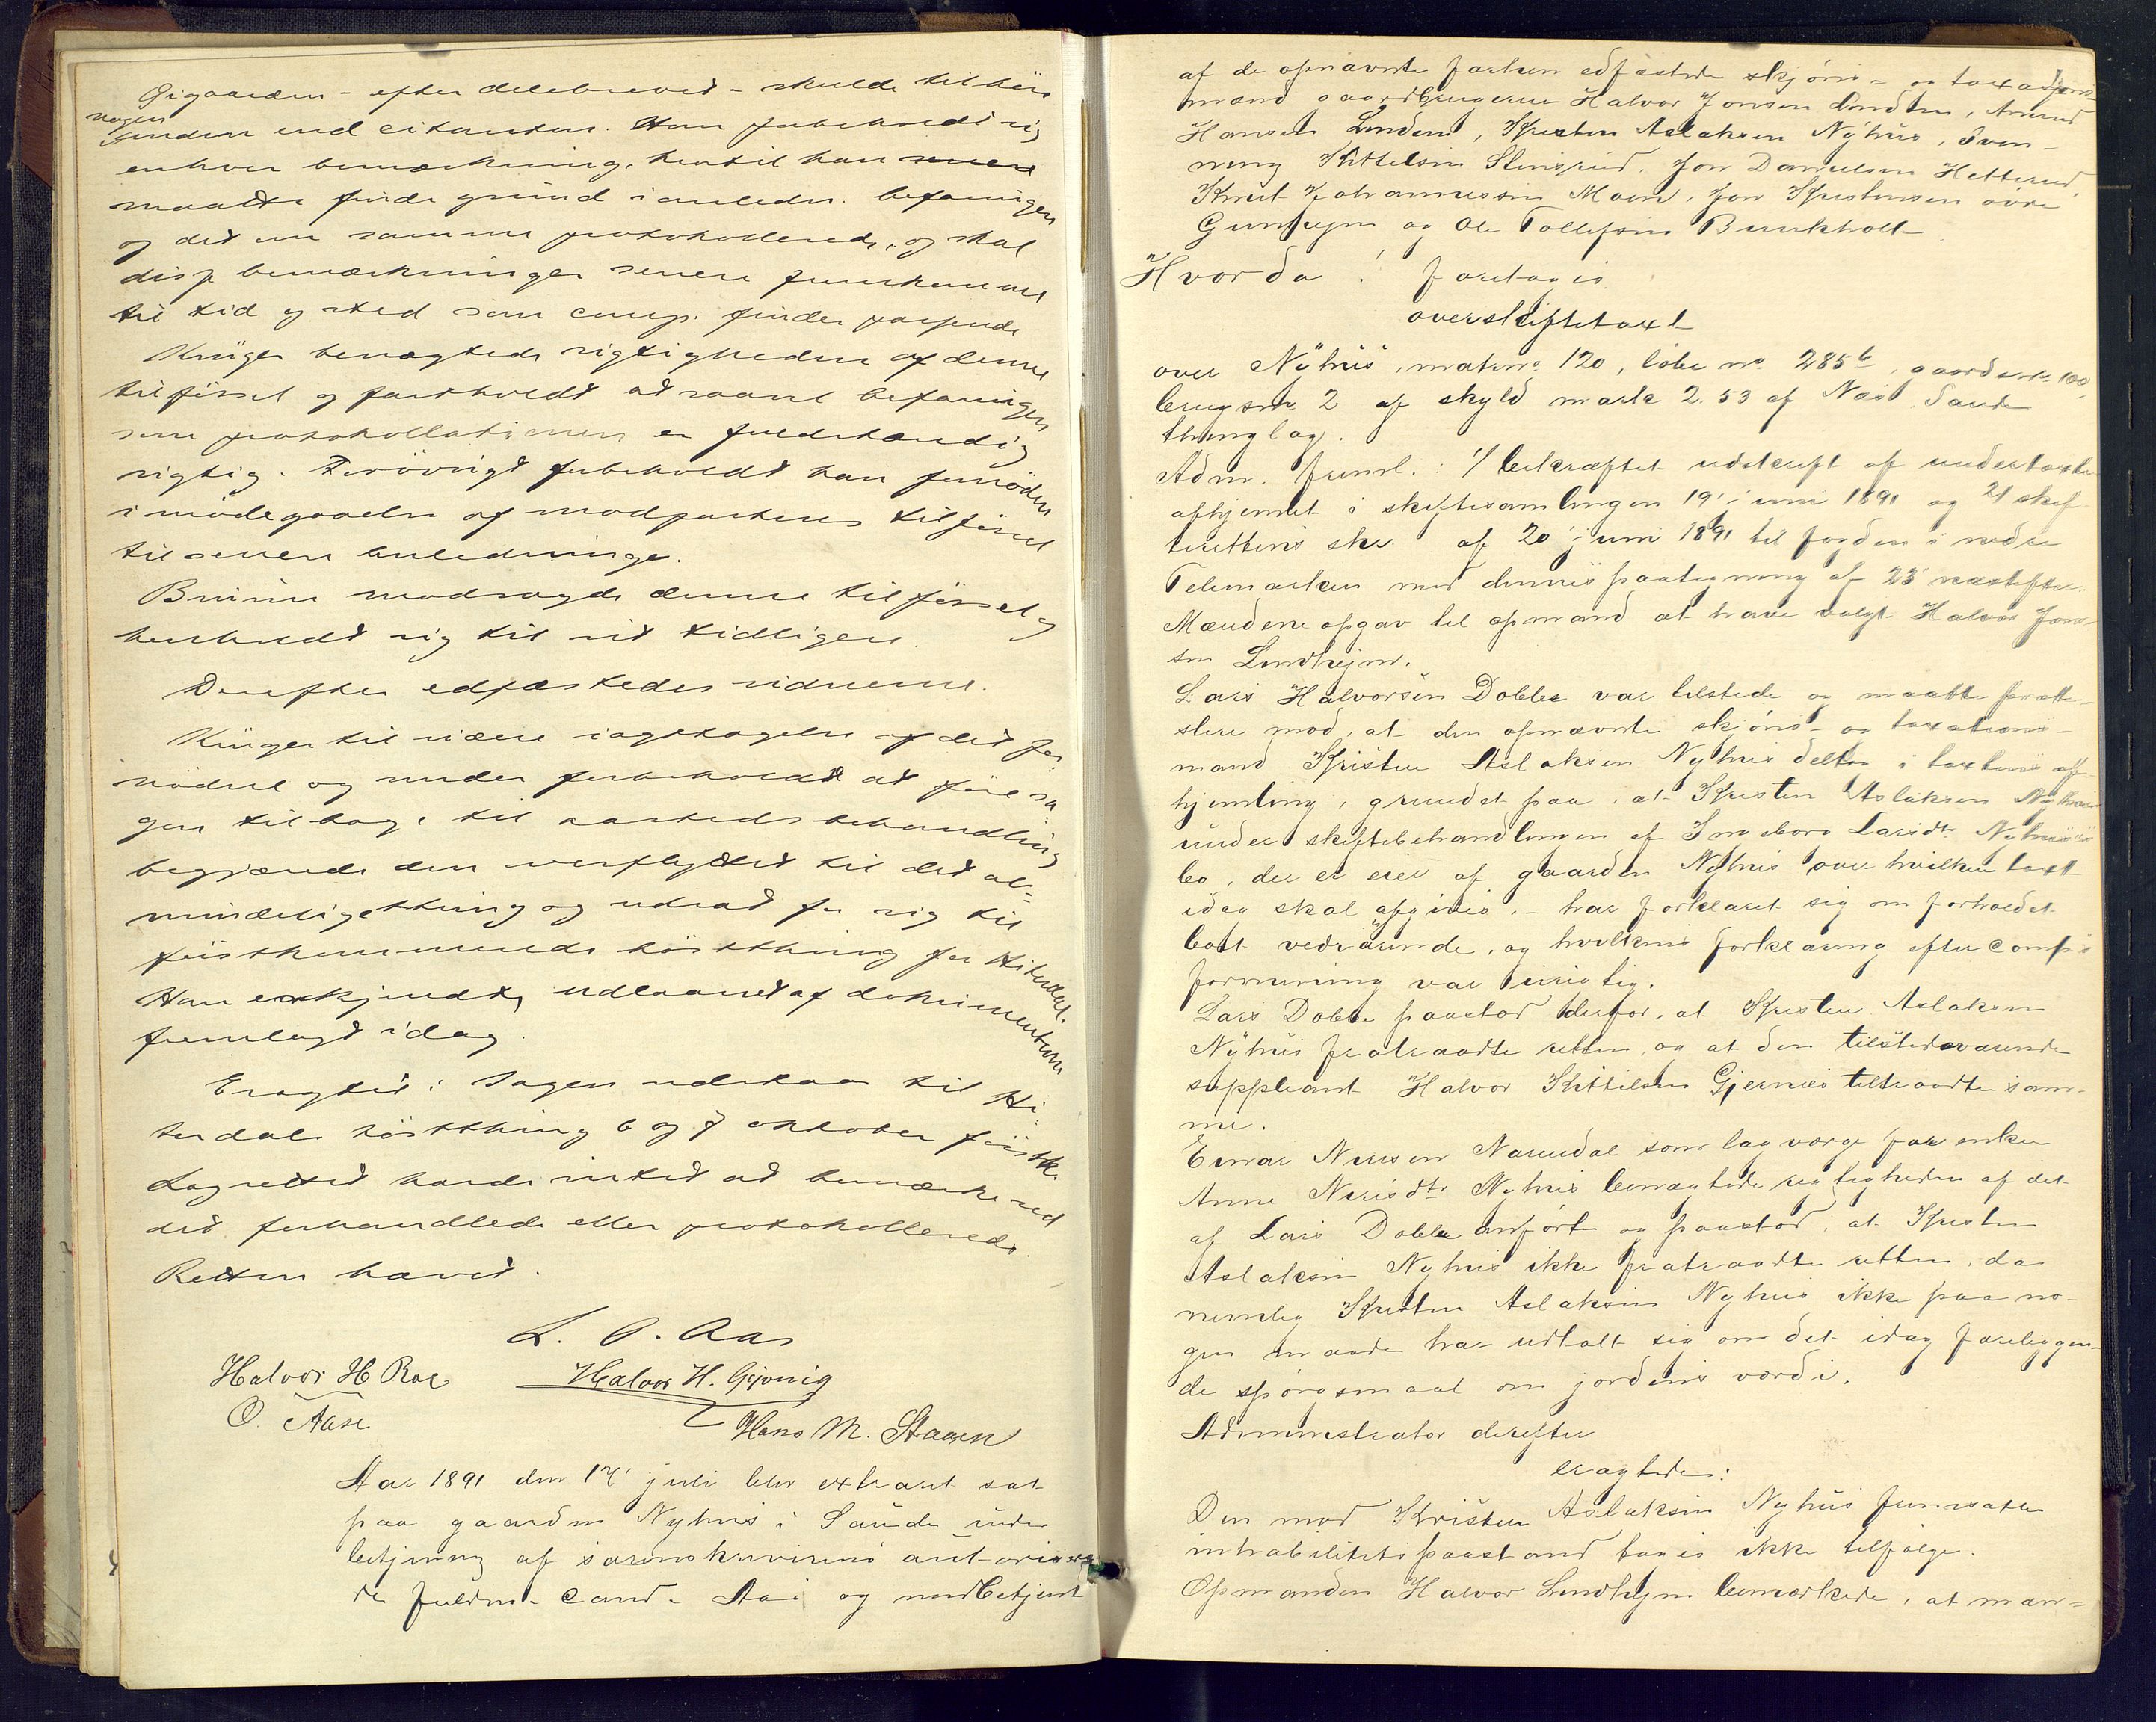 Øigaarden - efter delebrevet - skulde tilhöre
nogen
anden end citanten. Han forbeholdt sig
enhver bemærkning, hertil han senere
maatte finde grund i anledn. befaringen
og det um samme protokollerede, og skal
disse bemærkninger senere fremkomme
til tid og sted som comp. finder passende
Krüger benægtede rigtigheden af denne
tilförsel og fastholdt at saavel befaringen
som protokollationen er fuldstændig
rigtig. Forövrigt forbeholdt han fornöden
imödegaaelse af modpartens tilförsel
til senere anledninge.
Bruun modsagde denne tilförsel og
henholdt sig til sit tidligere.
Derefter edfæstedes vidnerne.
Krüger til videre iagttagelse af det for-
nödne og under forbehold at före sa-
gen tilbage til aastedsbehandling
begjærede den overflyttet til det al-
mindelige thing og udsat for sig til
förstkommende höstthing for Hiterdal.
Han erkjendte, udlaanet af dokumenterne
fremlagt idag.
Eragtet: Sagen udstaar til Hi-
terdals höstthing 6 og 7 oktober förstk.
Lagrettet havde intet at bemærke ved
det forhandlede eller protokollerede.
Retten hævet.
L. O. Aas
Halvor H Roe Halvor H. Gjernig
O. Aase
Hans M. Staaen
Aar 1891 den 17' juli blev extraret sat
paa gaarden Nyhus i Saude under
betjening af sorenskriverens autorisere-
de fuldm. cand. Aas og medbetjent
af de opnævnte forhen edfæstede skjöns- og taxations-
mænd gaardbrugerne Halvor Jonsen Lindem, Amund
Hansen Lindem, Kristen Aslaksen Nyhus, Sven-
ning Kittelsen Stensrud, Jon Danielsen Hetterud,
Knut Johannessen Moen, Jon Kristensen övre
Gunheim og Ole Tollefsen Bunkholt
Hvorda! foretoges
overskiftetaxt
over Nyhus, matrno. 120, löbe no. 285b, gaardsno. 100,
brugsno. 2 af skyld mark 2.53 af Næs Saude
thinglag.
Adm. freml.: 1/ bekræftet udskrift af undertaxten
afhjemlet i skiftesamlingen 19' juni 1891 og 2/ skif-
terettens skr. af 20' juni 1891 til fogden i nedre
Telemarken med dennes paategning af 23' næstefter.
Mændene opgav til opmand at have valgt Halvor Jon-
sen Lindhejm.
Lars Halvorsen Dobbe var tilstede og maatte prote-
stere mod, at den opnævnte skjöns- og taxations-
mand Kristen Aslaksen Nyhus deltar i taxtens af-
hjemling, grundet paa, at Kristen Aslaksen Nyhus
under skiftebehandlingen af Ingeborg Larsdtr. Nyhus's
bo, der er eier af gaarden Nyhus over hvilken taxt
idag skal afgives, - har forklaret sig om forholdet
boet vedrörende, og hvilkens forklaring efter comp.s
formening var urigtig.
Lars Dobbe paastod derfor, at Kristen Aslaksen
Nyhus fratraadte retten, og at den tilstedeværende
suppleant Halvor Kittilsen Gjernes tiltraadte sam-
me.
Einar Nirisen Narendal som lagværge for enken
Anne Nirisdtr. Nyhus benægtede rigtigheden af det
af Lars Dobbe anförte og paastod, at Kristen
Aslaksen Nyhus ikke fratraadte retten, da
nemlig Kristen Aslaksen Nyhus ikke paa no-
gen maade har udtalt sig om det idag foreliggen-
de spörgsmaal om jordens værdi.
Administrator derefter
eragtede:
Den mod Kristen Aslaksen Nyhus fremsatte
inhabilitetspaastand toges ikke tilfölge.
Opmanden Halvor Lindhejm bemærkede, at mæn-